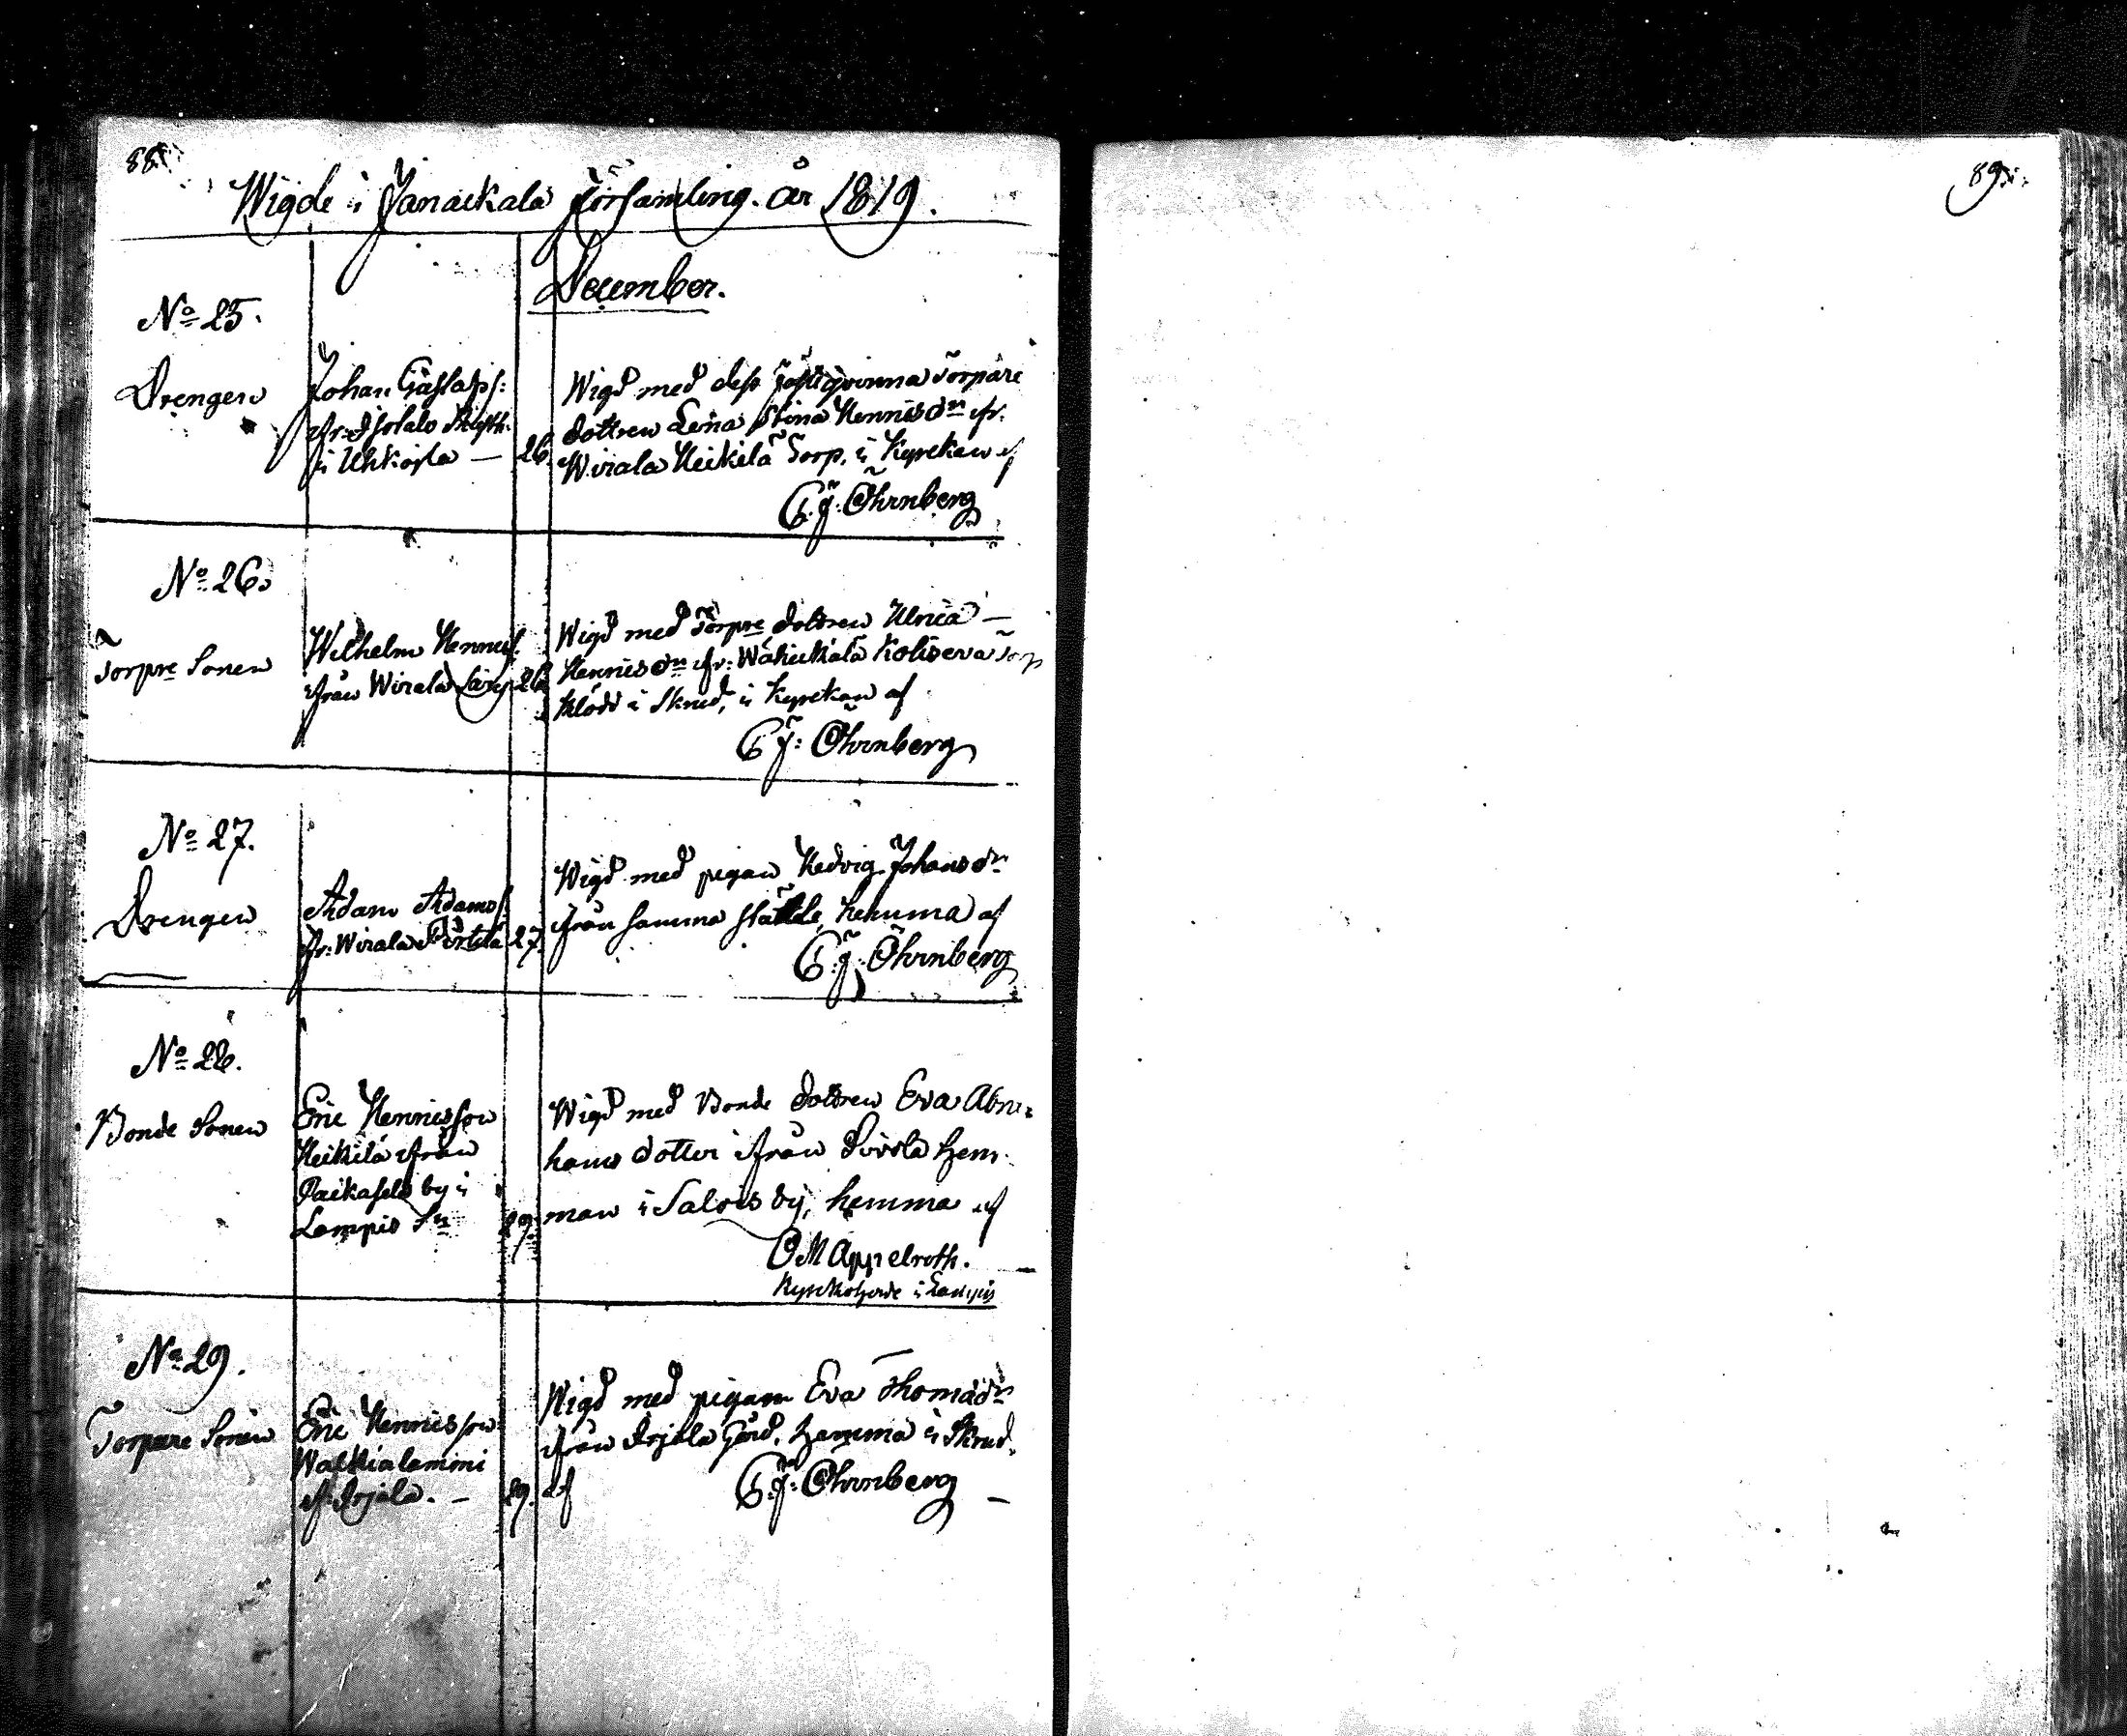 88.
Wigde i Janakkala Församling. År 1819.
December.
No 25.
Drengen
Johan Gustafss:
i Uhkoila — 26.
Wigd med dess Fästeqvinna Torpare
dottren Lena Stina Hennes dn fr.
Wirala Heikilä Torp, i Kyrckan af
C. J. Öhrnberg
No 26.
Torpre Sonen
Wilhelm Henness.
ifrån Wirala 26
Wigd med Torpre dottren Ulrica —
Hennis dn ifr: Torp
klädd i Skrud, i Kyrckan af
C J: Öhrnberg
No 27.
Drengen
Adam Adams:
fr: Wirala Pertilä 27.
Wigd med pigan Hedvig Johans dr
ifrån samma ställe, hemma af
C: J: Öhrnberg
No 28.
Bonde Sonen
Eric Hennesson
Heikilä ifrån
by i
Lampis Sn 29.
Wigd med Bonde dottren Eva Abra-
hams dotter ifrån hem-
man i Salois by, hemma af
O M Appelroth.
Kyrckoherde i Lampis
No 29.
Torpare Sonen
Eric Hennisson
Walkialammi
ifr Irjala. — 29.
Wigd med pigan Eva Thomædr
ifrån Irjala Gård, hemma i Skrud.
af C: J: Öhrnberg —
89.